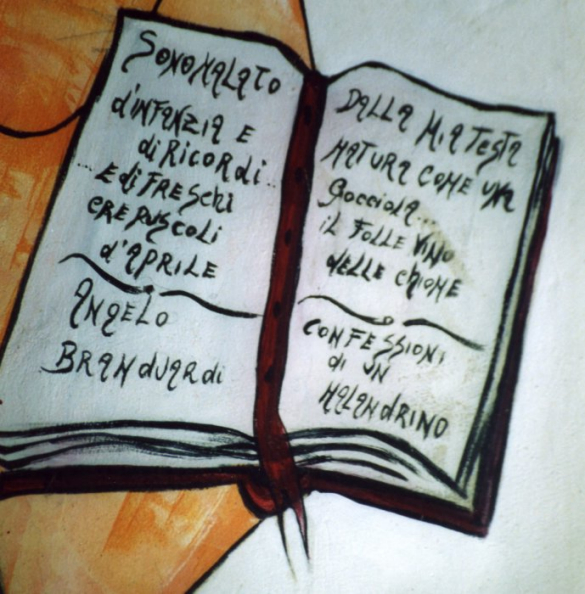 SONO MALATO
d'INFANZIA E
di RICORdi...
E di FRESChi
CREPUSCOLI
d'APRILE
ANGELO
BRANdUARdi
DALLA MIA TESTA
MATURA COME UNA
gocciola...
iL FOLLE VINO
dELLE ChIOME
CONFESSIONI
di UN
MALANDRINO